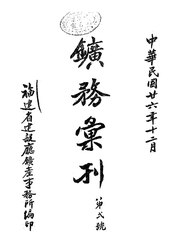 中華民國廿六年十二月
鑛務彙刊
第弍號
福建省建設廳鑛產事務所編印